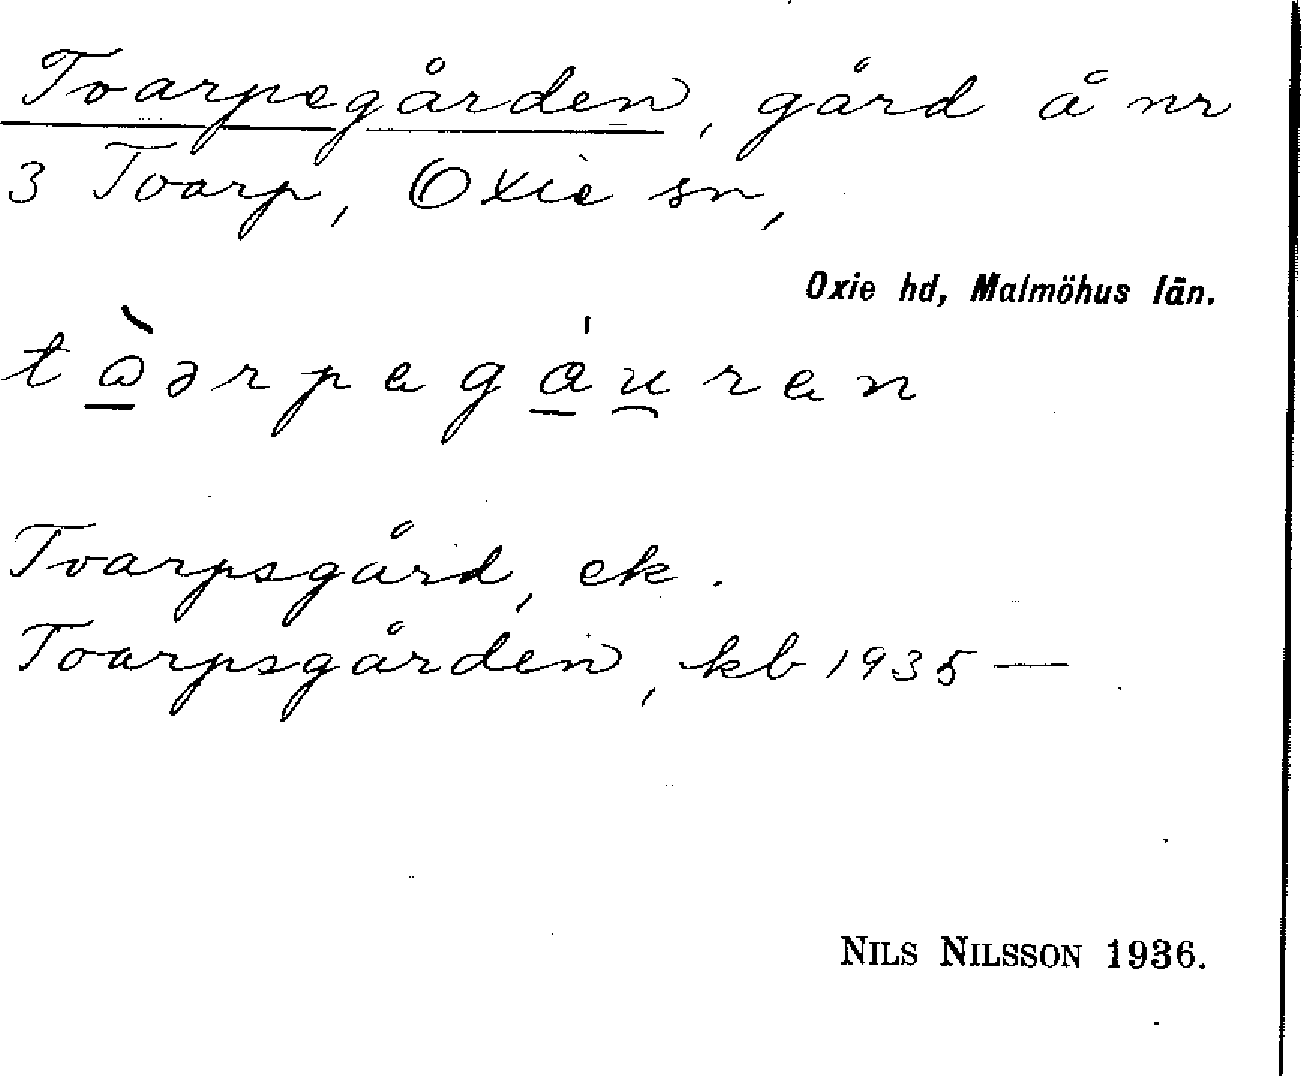 Toarpegården, gård å nr
3 Toarp, Oxie sn,
Oxie hd, Malmöhus län.
Toarpsgård, ek.
Toarpsgården, kb 1935—
NILS NILSSON 1936.